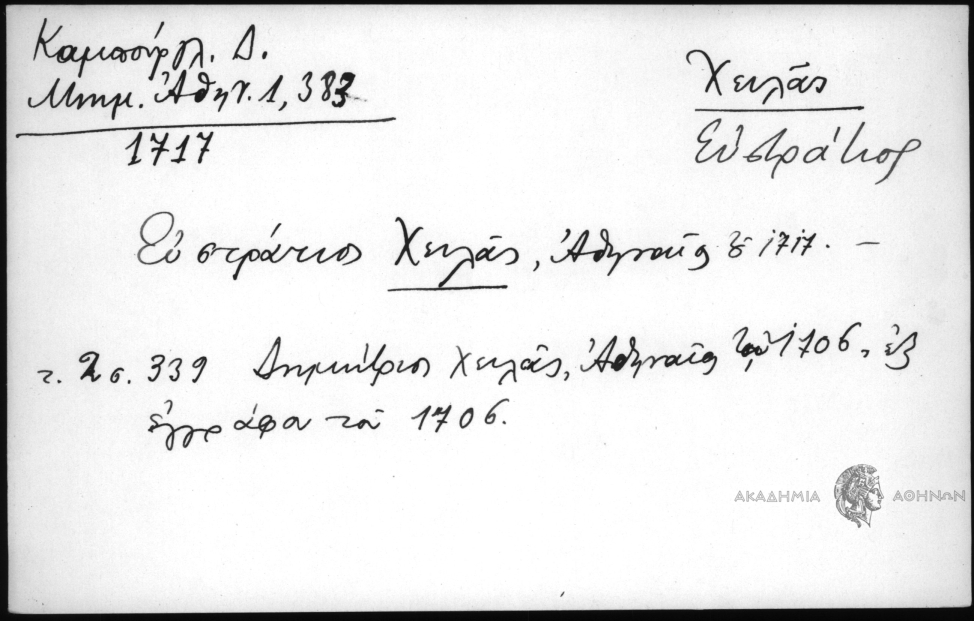 Καμπούργλ. Δ.
Μνημ. Ἀθην. 1, 383
1717
Χειλᾶς
Εὐστράτιος
Εὐστράτιος Χειλᾶς, Ἀθηναῖος 1717. –
τ. 2 σ. 339 Δημήτριος Χειλᾶς, Ἀθηναῖος τοῦ 1706, ἐξ
ἐγγράφου τοῦ 1706.
ΑΚΑΔΗΜΙΑ ΑΘΗΝΩΝ